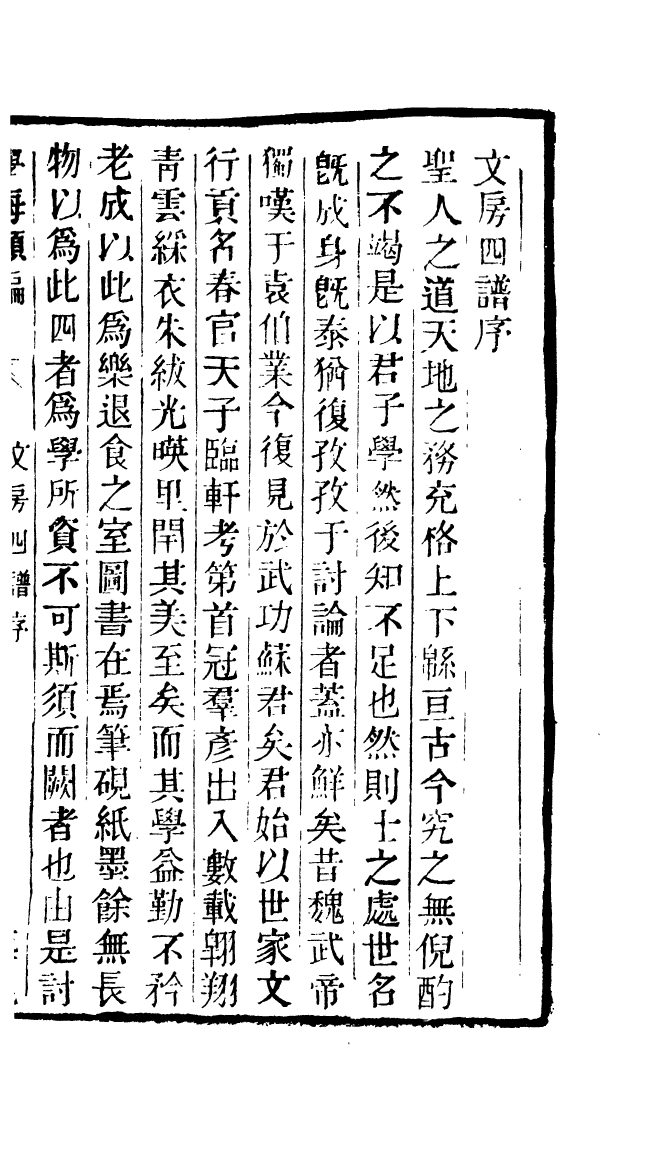 文房四譜序
聖人之道天地之務充格上下緜亘古今究之無倪酌
之不竭是以君子學然後知不足也然則士之處世名
旣成身旣泰猶復孜孜于討論者蓋亦鮮矣昔魏武帝
獨嘆于袁伯業今復見於武功蘇君矣君始以世家文
行貢名春官天子臨軒考第首冠羣彥出入數載翱翔
青雲綵衣朱紱光暎里閈其美至矣而其學益勤不矜
老成以此爲樂退食之室圖書在焉筆硯紙墨餘無長
物以爲此四者爲學所資不可斯須而闕者也由是討
學海類編 文房四譜序